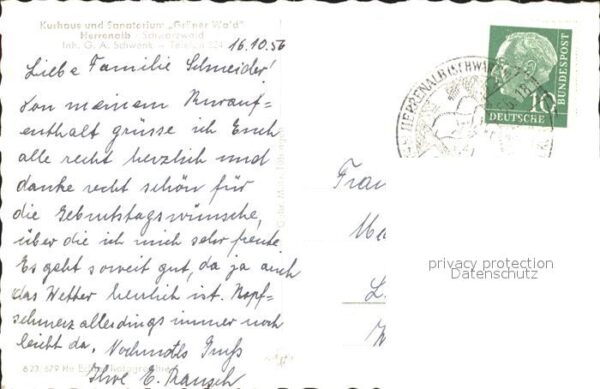 Kurhaus und Sanatorium „Grüner Wald"
Herrenalb Schwarzwald
Inh. G. A. Schwenk - Telefon 324
16.10.56
Liebe Familie Schneider!
Von meinem Kurauf-
enthalt grüsse ich Euch
alle recht herzlich und
danke recht schön für
die Geburtstagswünsche,
über die ich mich sehr freute.
Es geht soweit gut, da ja auch
das Wetter herrlich ist. Kopf-
schmerz allerdings immer noch
leicht da. Nochmals Gruß
Ihre E. Rausch
623/679
HERRENALB (SCHWARZW
10
DEUTSCHE
BUNDESPOST
Frau
Ma
L.
privacy protection
Datenschutz